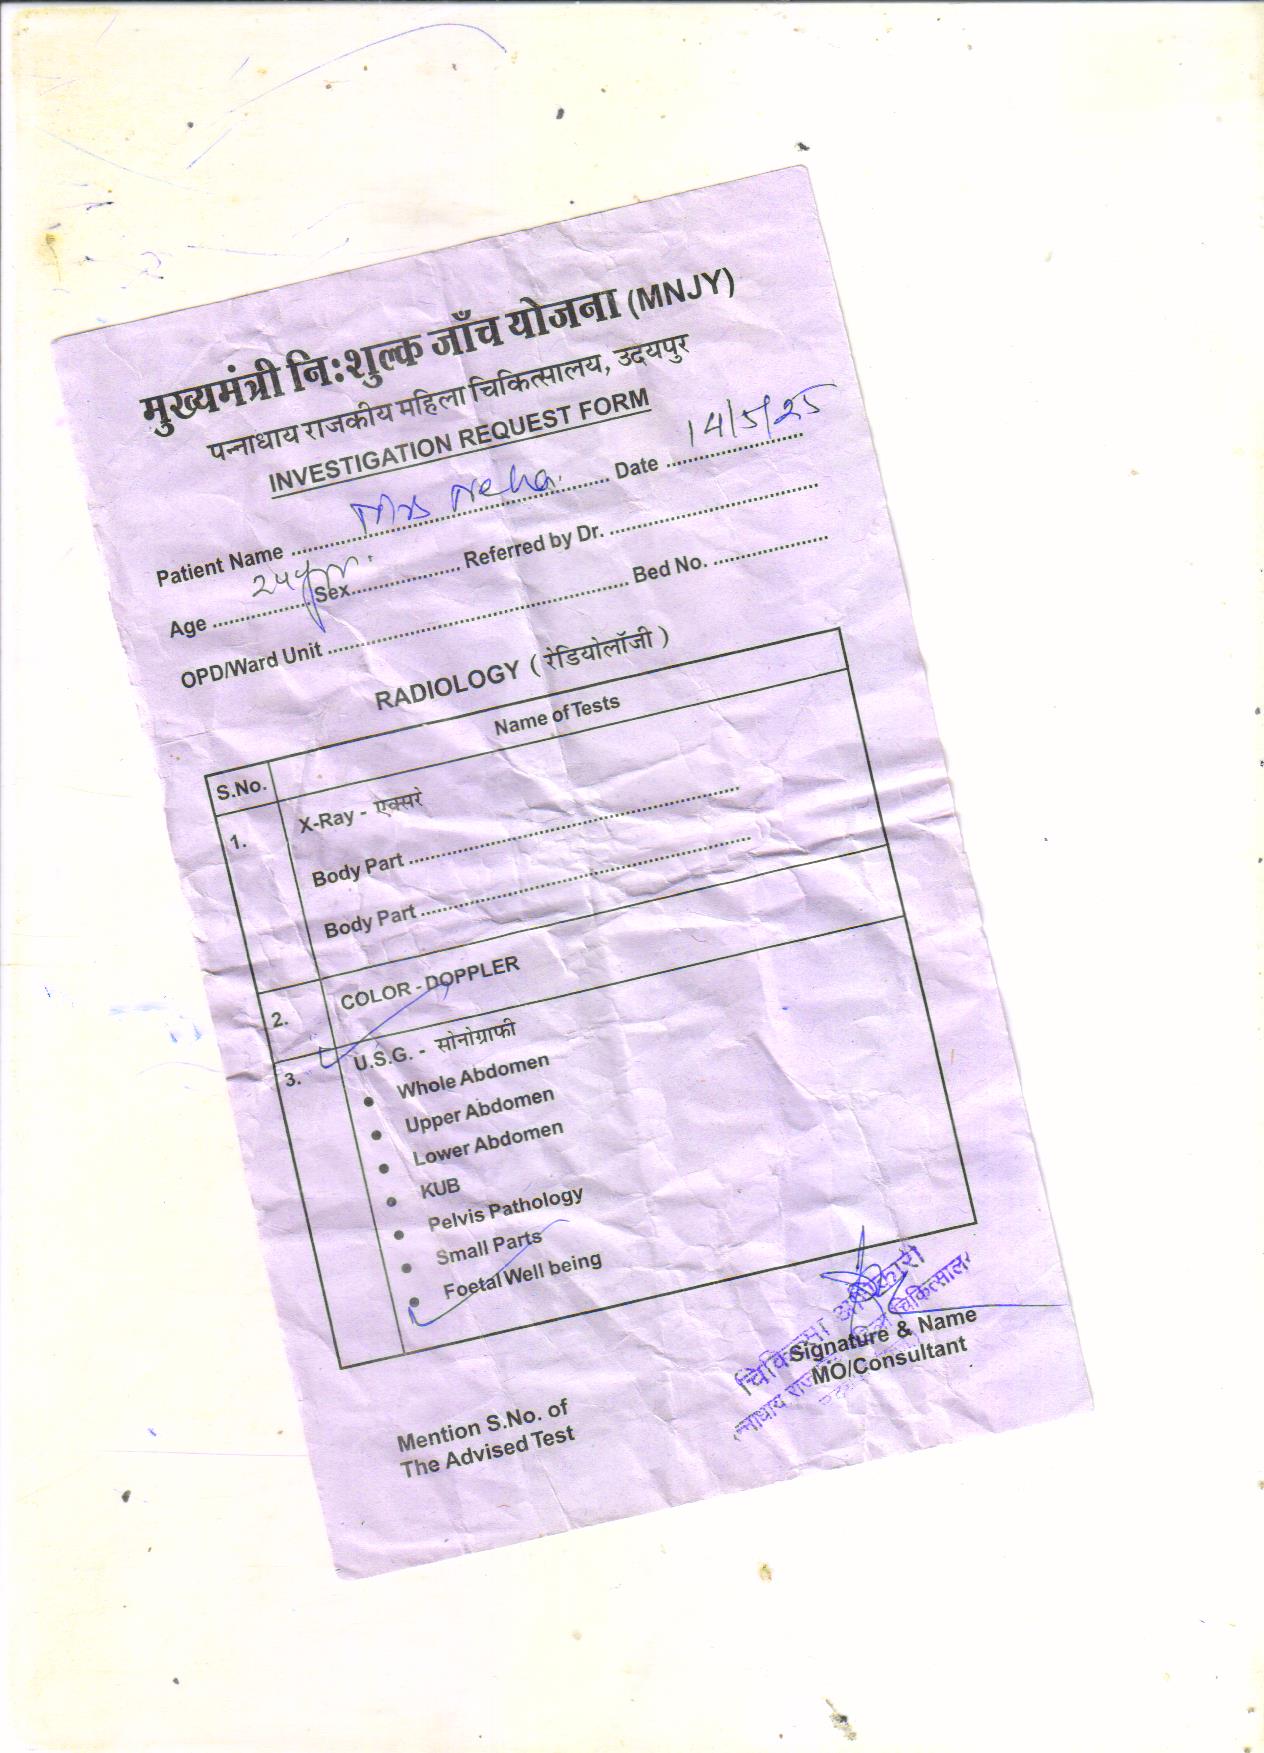 मुख्यमंत्री निःशुल्क जाँच योजना (MNJY)
पन्नाधाय राजकीय महिला चिकित्सालय, उदयपुर
INVESTIGATION REQUEST FORM
Patient Name Mrs Neha. Date 14/5/25
Age 24yr. Sex Referred by Dr.
OPD/Ward Unit Bed No.
RADIOLOGY ( रेडियोलॉजी )
S.No. Name of Tests
1. X-Ray - एक्सरे
Body Part
Body Part
2. COLOR - DOPPLER
3. U.S.G. - सोनोग्राफी
• Whole Abdomen
• Upper Abdomen
• Lower Abdomen
• KUB
• Pelvis Pathology
• Small Parts
• Foetal Well being
चिकित्सा अधिकारी
चिकित्साल
Signature & Name
MO/Consultant
Mention S.No. of
The Advised Test